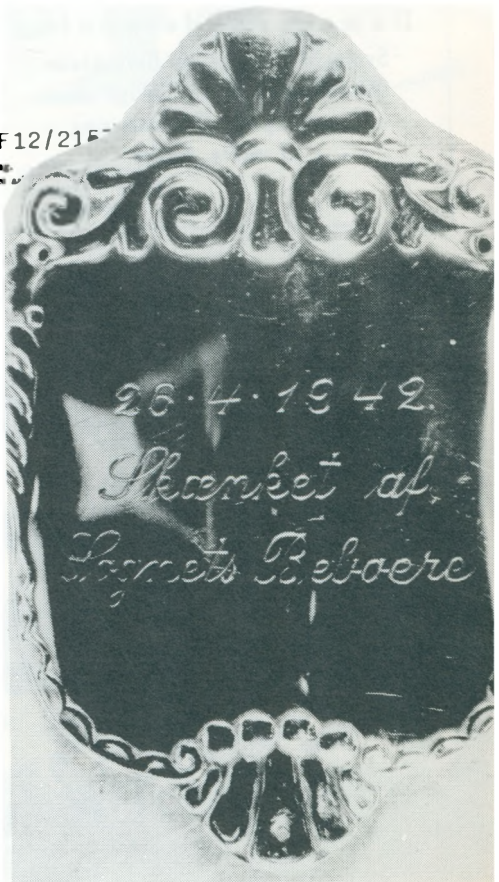 F12/215
26·4·1942.
Skænket af
Sognets Beboere